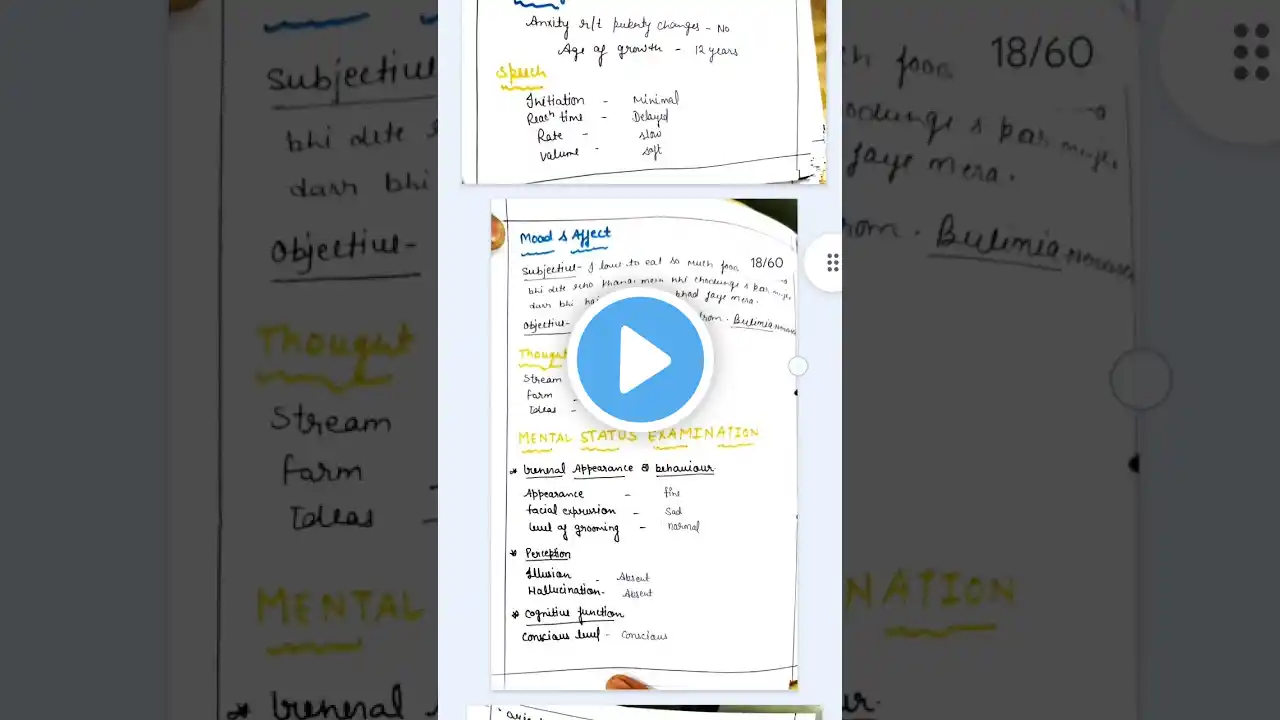 Anxity r/t puberty changes - No
Age of growth - 12 years
Speech
Initiation - Minimal
Reach time - Delayed
Rate - slow
Volume - soft
Mood & Affect
Subjective - I love to eat so much food 18/60
bhi dete
darr bhi jaye mera.
Objective - from. Bulimia nervosa
Thought
Stream
Form -
Ideas -
MENTAL STATUS EXAMINATION
* General Appearance & behaviour.
Appearance - fine
facial expression - Sad
level of grooming - normal
* Perception
Illusion - Absent
Hallucination - Absent
* Cognitive function
Conscious level - Conscious